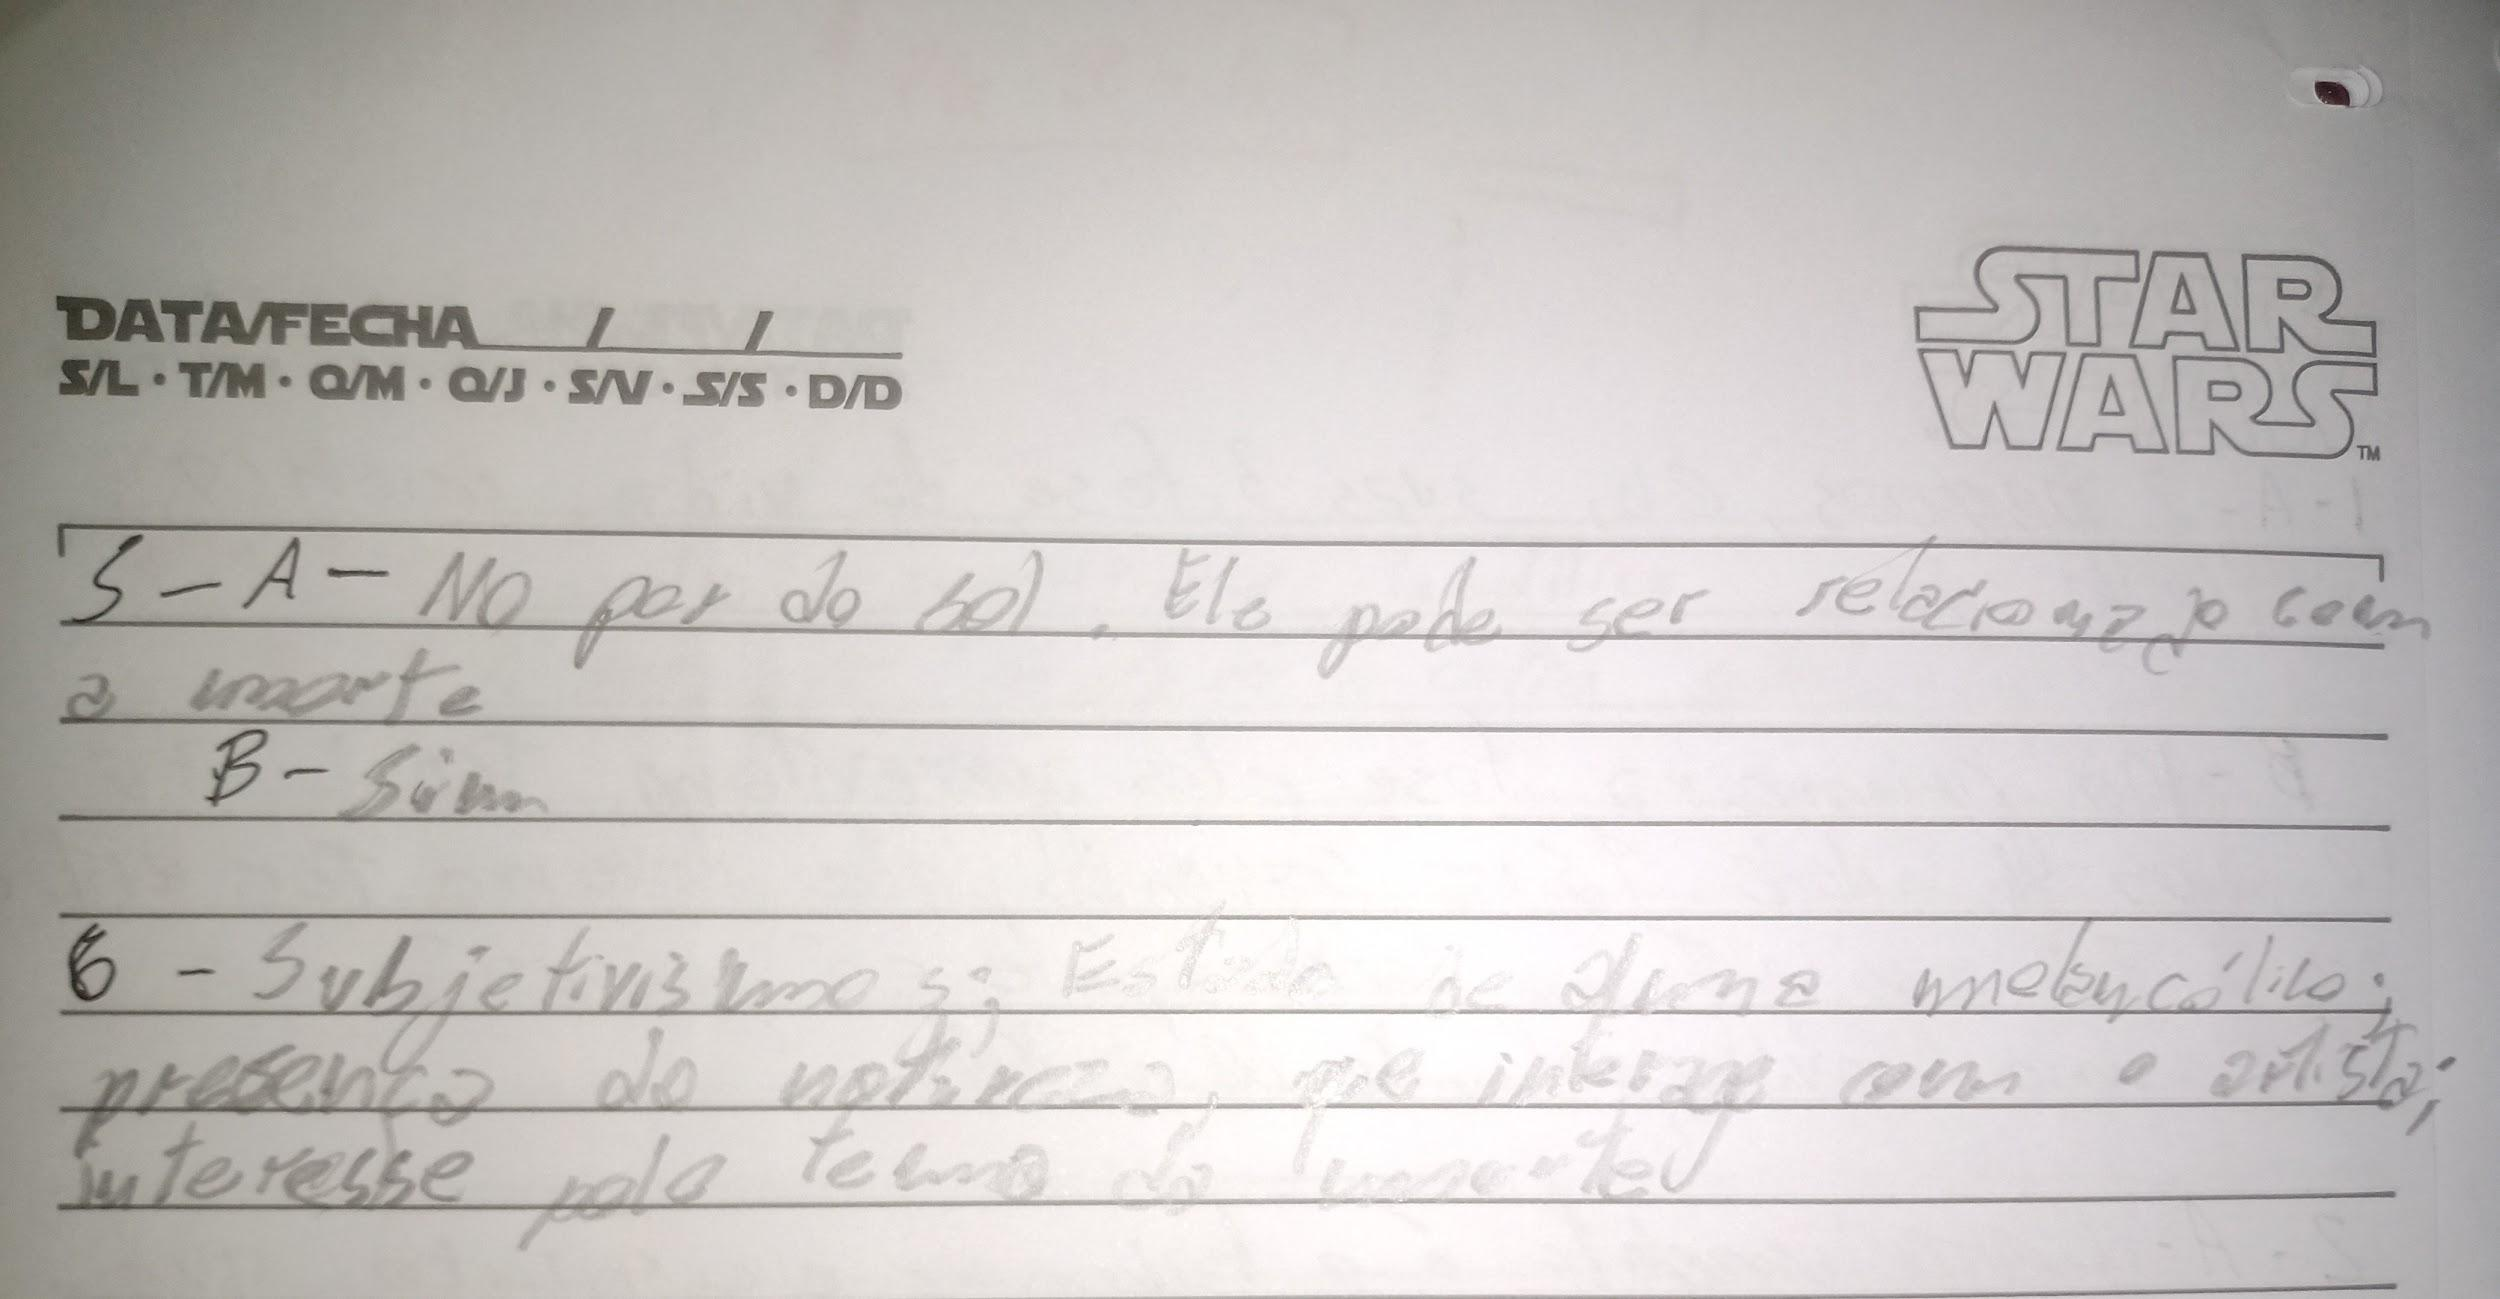 DATA/FECHA / /
S/L • T/M • Q/M • Q/J • S/V • S/S • D/D
STAR
WARS TM
5 - A - No por do sol. Ele pode ser relacionado com
a morte
B - Sim
6 - Subjetivismo s; Estado de alma melancólico;
presença da natureza, que interage com o artista;
interesse pelo tema da morte